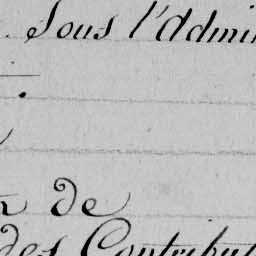 Sous l'Admini
de
des Contribut